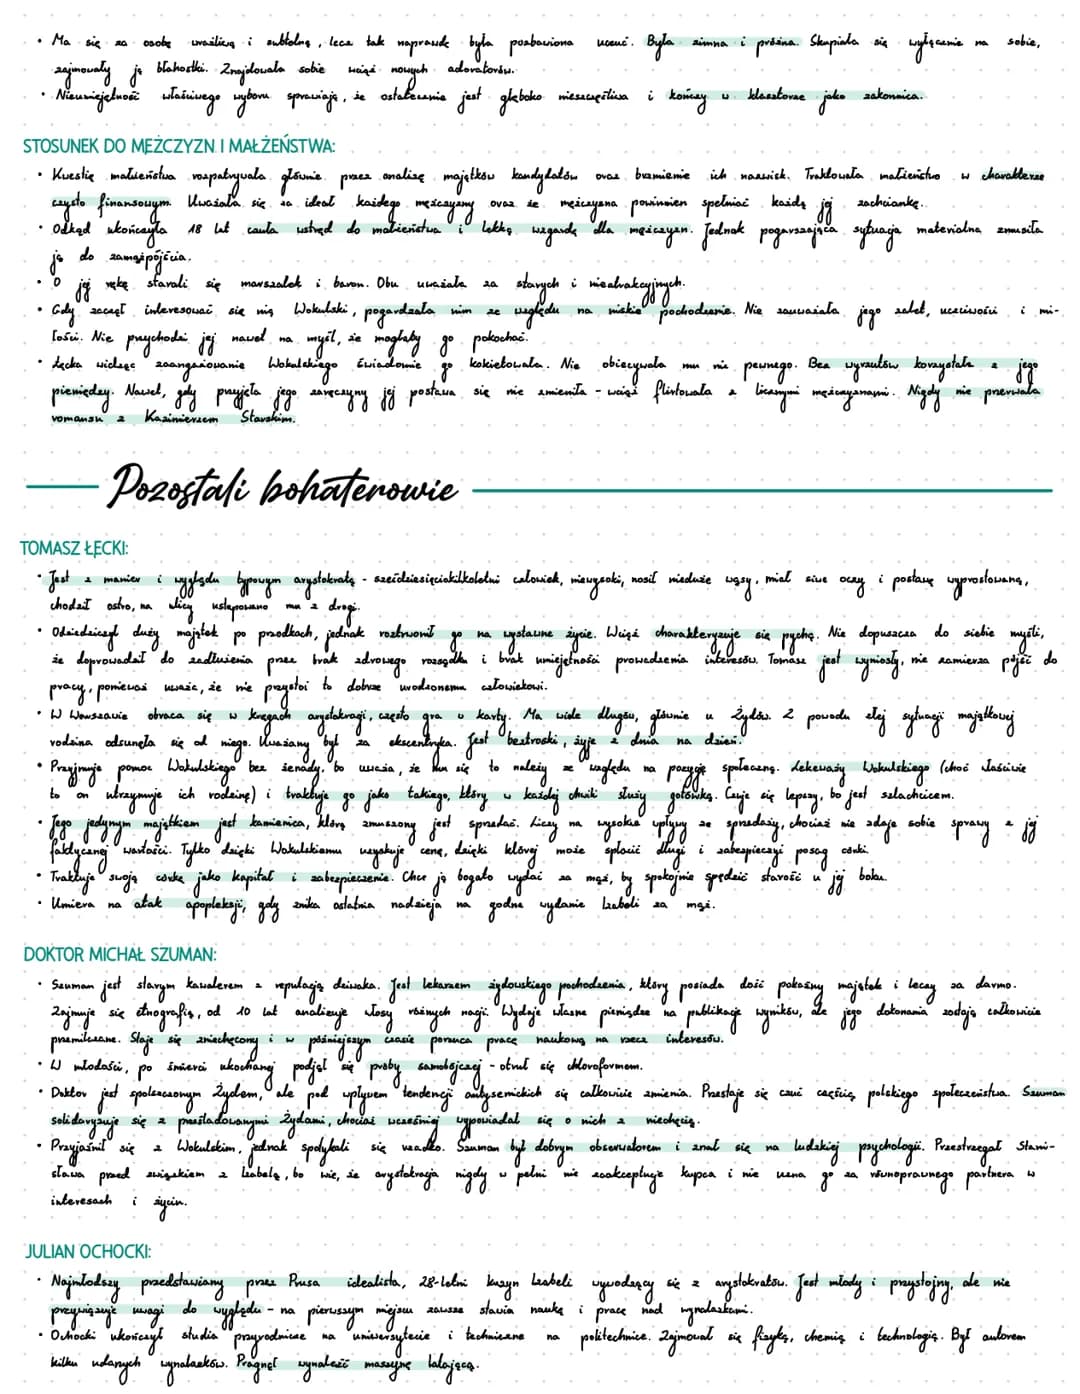 • Ma się za osobę wrażliwą i subtelną, lecz tak naprawdę była pozbawiona uczuć. Była zimna i próżna. Skupiała się wyłącznie na sobie,
zajmowały ją błahostki. Znajdowała sobie wciąż nowych adoratorów.
• Nieumiejętność właściwego wyboru sprawiają, że ostatecznie jest głęboko nieszczęśliwa i kończy w klasztorze jako zakonnica.
STOSUNEK DO MĘŻCZYZN I MAŁŻEŃSTWA:
• Kwestię małżeństwa rozpatrywała głównie przez analizę majątków kandydatów oraz brzmienie ich nazwisk. Traktowała małżeństwo w charakterze
czysto finansowym. Uważała się za ideał każdego mężczyzny oraz że mężczyzna powinien spełniać każdą jej zachciankę.
• Odkąd ukończyła 18 lat czuła wstręd do małżeństwa i lekką wzgardę dla mężczyzn. Jednak pogarszająca sytuacja materialna zmusiła
ją do zamążpójścia.
• O jej rękę starali się marszałek i baron. Obu uważała za starych i nieatrakcyjnych.
• Gdy zaczął interesować się nią Wokulski, pogardzała nim ze względu na niskie pochodzenie. Nie zauważała jego zalet, uczciwości i mi-
łości. Nie przychodzi jej nawet na myśl, że mogłaby go pokochać.
• Łęcka widząc zaangażowanie Wokulskiego świadomie go kokietowała. Nie obiecywała mu nic pewnego. Bez wyrzutów korzystała z jego
pieniędzy. Nawet, gdy przyjęła jego zaręczyny jej postawa się nie zmieniła - wciąż flirtowała z licznymi mężczyznami. Nigdy nie przerwała
romansu z Kazimierzem Starskim.
Pozostali bohaterowie
TOMASZ ŁĘCKI:
• Jest z manier i wyglądu typowym arystokratą - sześćdziesięciokilkoletni człowiek, niewysoki, nosił nieduże wąsy, miał siwe oczy i postawę wyprostowaną,
chodził ostro, na ulicy ustępowano mu z drogi.
• Odziedziczył duży majątek po przodkach, jednak roztrwonił go na wystawne życie. Wciąż charakteryzuje się pychą. Nie dopuszcza do siebie myśli,
że doprowadził do zadłużenia przez brak zdrowego rozsądku i brak umiejętności prowadzenia interesów. Tomasz jest wyniosły, nie zamierza pójść do
pracy, ponieważ uważa, że nie przystoi to dobrze urodzonemu człowiekowi.
• W Warszawie obraca się w kręgach arystokracji, często gra w karty. Ma wiele długów, głównie u Żydów. Z powodu złej sytuacji majątkowej
rodzina odsunęła się od niego. Uważany był za ekscentryka. Jest beztroski, żyje z dnia na dzień.
• Przyjmuje pomoc Wokulskiego bez żenady, bo uważa, że mu się to należy ze względu na pozycję społeczną. Lekceważy Wokulskiego (choć właściwie
to on utrzymuje ich rodzinę) i traktuje go jako takiego, który w każdej chwili służy gotówką. Czuje się lepszy, bo jest szlachcicem.
• Jego jedynym majątkiem jest kamienica, którą zmuszony jest sprzedać. Liczy na wysokie wpływy ze sprzedaży, chociaż nie zdaje sobie sprawy z jej
faktycznej wartości. Tylko dzięki Wokulskiemu uzyskuje cenę, dzięki której może spłacić długi i zabezpieczyć posag córki.
• Traktuje swoją córkę jako kapitał i zabezpieczenie. Chce ją bogato wydać za mąż, by spokojnie spędzić starość u jej boku.
• Umiera na atak apopleksji, gdy znika ostatnia nadzieja na godne wydanie Izabeli za mąż.
DOKTOR MICHAŁ SZUMAN:
• Szuman jest starym kawalerem z reputacją dziwaka. Jest lekarzem żydowskiego pochodzenia, który posiada dość pokaźny majątek i leczy za darmo.
Zajmuje się etnografią, od 10 lat analizuje włosy różnych nacji. Wydaje własne pieniądze na publikacje wyników, ale jego dokonania zostają całkowicie
przemilczane. Staje się zniechęcony i w późniejszym czasie porzuca pracę naukową na rzecz interesów.
• W młodości, po śmierci ukochanej podjął się próby samobójczej - otruł się chloroformem.
• Doktor jest spolszczonym Żydem, ale pod wpływem tendencji antysemickich się całkowicie zmienia. Przestaje się czuć częścią polskiego społeczeństwa. Szuman
solidaryzuje się z prześladowanymi Żydami, chociaż wcześniej wypowiadał się o nich z niechęcią.
• Przyjaźnił się z Wokulskim, jednak spotykali się rzadko. Szuman był dobrym obserwatorem i znał się na ludzkiej psychologii. Przestrzegał Stani-
sława przed związkiem z Izabelą, bo wie, że arystokracja nigdy w pełni nie zaakceptuje kupca i nie uzna go za równoprawnego partnera w
interesach i życiu.
JULIAN OCHOCKI:
• Najmłodszy przedstawiany przez Prusa idealista, 28-letni kuzyn Izabeli wywodzący się z arystokratów. Jest młody i przystojny, ale nie
przywiązuje uwagi do wyglądu - na pierwszym miejscu zawsze stawia naukę i pracę nad wynalazkami.
• Ochocki ukończył studia przyrodnicze na uniwersytecie i techniczne na politechnice. Zajmował się fizyką, chemią i technologią. Był autorem
kilku udanych wynalazków. Pragnął wynaleźć maszynę latającą.